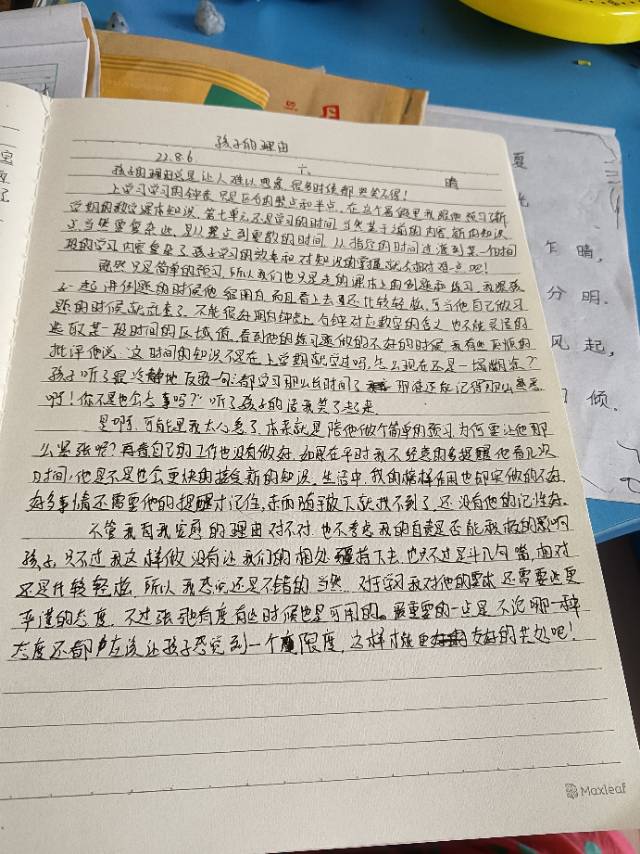 孩子的理由
22.8.6 六 晴
孩子的理由总是让人难以思虑,很多时候都哭笑不得!
上学习学习的钟表只是区分的整点和半点,在这个暑假里我跟他预习了新
学期的数学课本知识,第七单元还是学习的时间,当然基于之前的内容,新的知识
点当然要复杂些,是从整点到更散的时间,从指定的时间过渡到某一个时间
段的学习,内容复杂了,孩子学习的效率和对知识的掌握就太相对难一点吧!
既然只是简单的预习,所以我们也只是走的课本上的例题和练习,我跟孩
子一起讲例题的时候他能明白,而且看上去还比较轻松,可当他自己做习
题的时候就沉重了,不能很好理解钟表上分针对应数字的含义,也不能灵活的
读取某一段时间的区域值,看到他的练习题做的不好的时候,我有些压低的
批评他说:这时间的知识不是在上学期就学过吗,怎么现在还是一塌糊涂?
孩子听了很冷静地反驳一句:都学习那么长时间了,那谁还能记得那么熟悉
啊!你不是也会忘事吗?听了孩子的话我笑了起来。
是啊,可能是我太心急了,本来就是陪他做个简单的预习,为何要让他那
么紧张呢?再看自己的工作也没有做好,如果在平时我不经意的多提醒他看几次
时间,他是不是也会更快的接受新的知识。生活中,我的榜样作用也却实做的不好,
好多事情还需要他的提醒才记住,东西随手放下就找不到了,还没有他的记性好。
不管我自我安慰的理由对不对,也不考虑我的自责是否能积极的影响
孩子,只不过我这样做没有让我们的相处僵持下去,也只不过是斗几句嘴,面对
还是比较轻松,所以我态度还是不错的,当然,对于学习我对他的要求还需要些更
平谨的态度,不过张弛有度有些时候也是可用的。最重要的一点是不论哪一种
态度还都应该让孩子感觉到一个限度,这样才能更友好的共处吧!
Maxleaf
夏
乍晴,
分明.
风起,
倾.